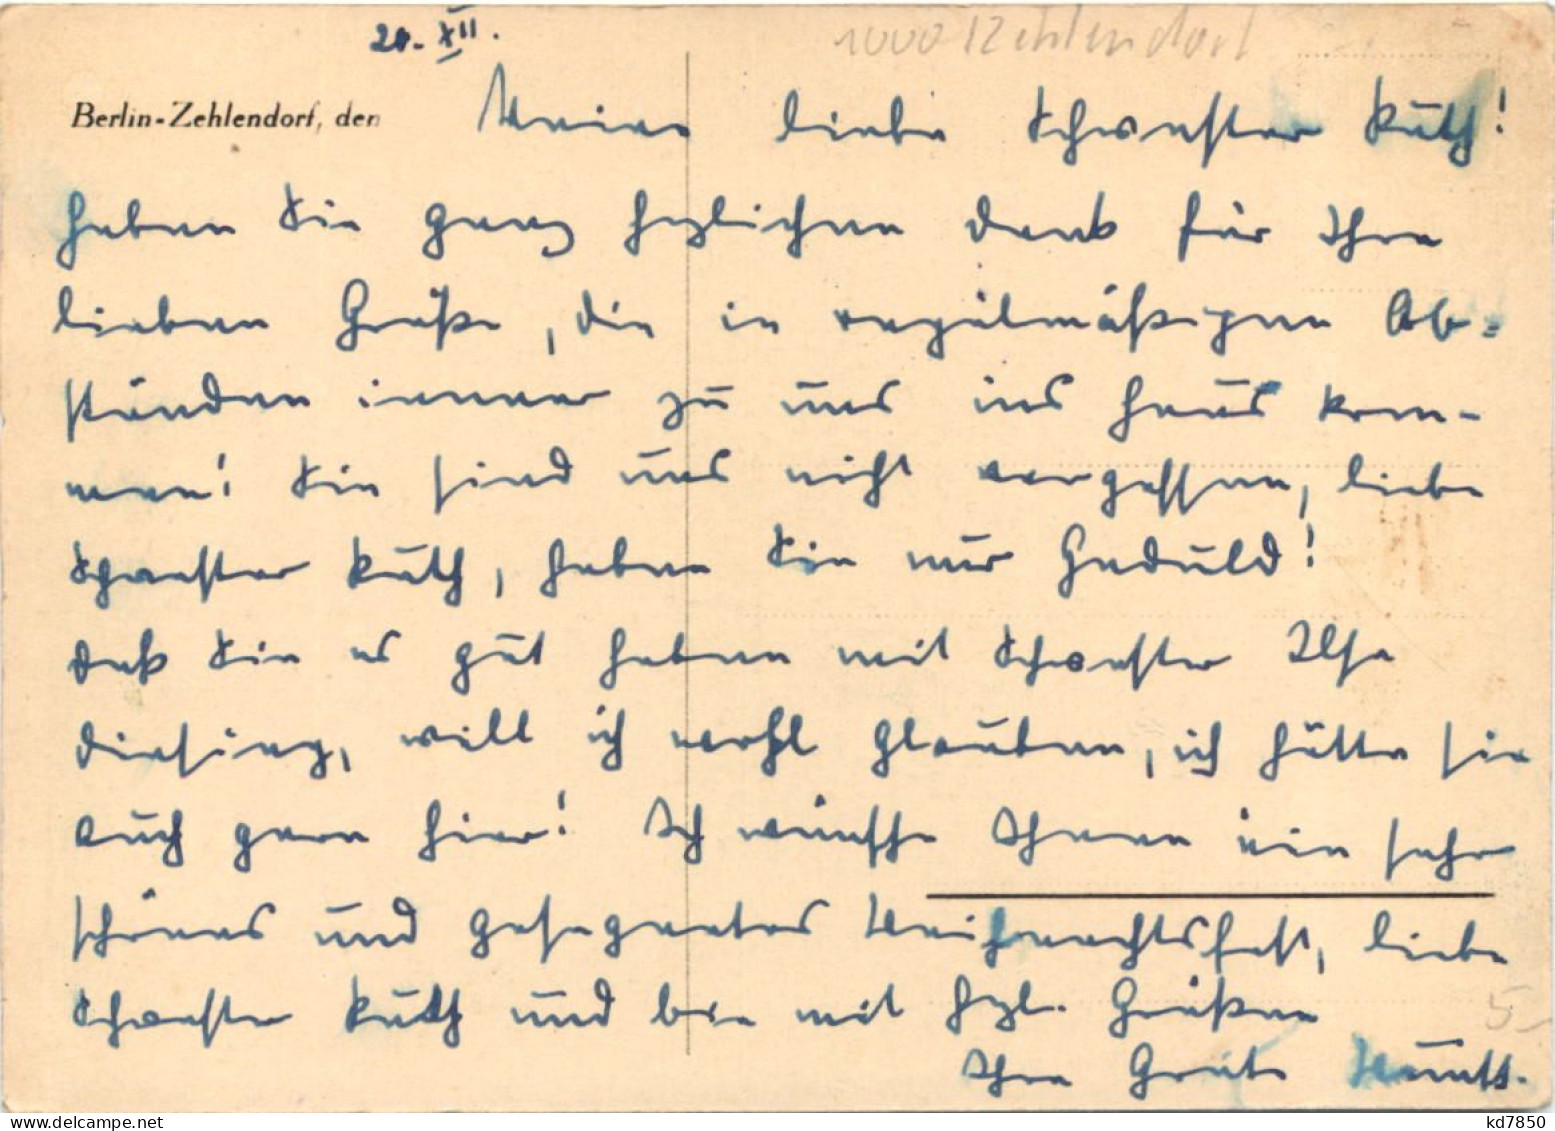 20. XII.
1000 Zehlendorf
Berlin-Zehlendorf, den
Meine liebe Schwester Ruth!
haben Sie ganz herzlichen Dank für Ihre
lieben Grüße, die in regelmäßigen Ab=
ständen immer zu uns ins Haus kom-
men! Sie sind uns nicht vergessen, liebe
Schwester Ruth, haben Sie nur Geduld!
Daß Sie es gut haben mit Schwester Ilse
Diesing, will ich wohl glauben, ich hätte sie
auch gern hier! Ich wünsche Ihnen ein sehr
schönes und gesegnetes Weihnachtsfest, liebe
Schwester Ruth und bin mit hzl. Grüßen
Ihre Grete
5,-
kd7850